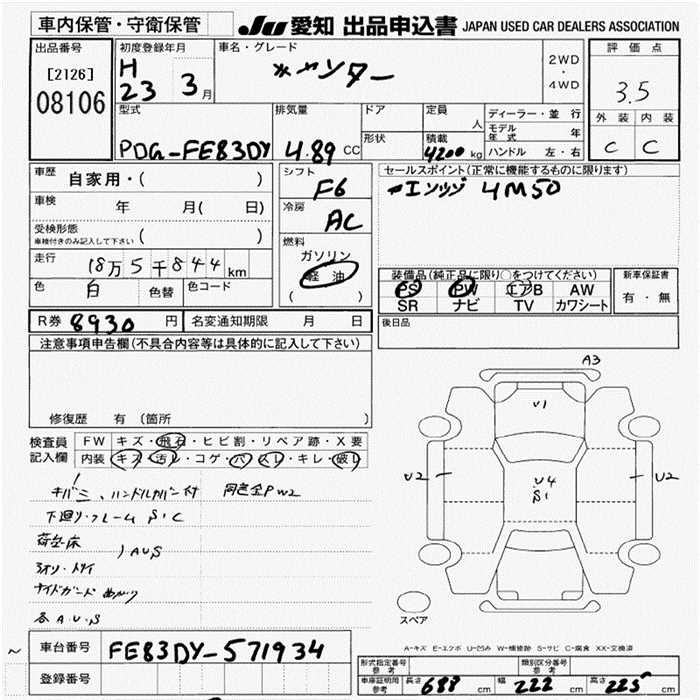 車内保管・守衛保管
JU 愛知 出品申込書 JAPAN USED CAR DEALERS ASSOCIATION
出品番号
[2126]
08106
初度登録年月
H 23 3月
車名・グレード
キャンター
2WD
・
4WD
評価点
3.5
外装 内装
C C
型式
PDG-FE83DY
排気量
4.89 CC
ドア
形状
定員
人
積載
4200 kg
ディーラー・並行
モデル年式 年
ハンドル 左・右
車歴 自家用・( )
車検 年 月( 日)
受検形態
車検付きのみ記入して下さい ( )
走行 18万5千844km
色 白 色替 色コード
シフト
F6
冷房
AC
燃料
ガソリン
軽油
( )
セールスポイント(正常に機能するものに限ります)
エンジン 4M50
装備品(純正品に限り○をつけてください)
PS PW エアB AW
SR ナビ TV カワシート
新車保証書
有・無
R券 8930円 名変通知期限 月 日
後日品
注意事項申告欄(不具合内容等は具体的に記入して下さい)
修復歴 有(箇所 )
検査員記入欄
FW キズ・飛石・ヒビ割・リペア跡・X要
内装 キズ・汚レ・コゲ・穴・スレ・キレ・破レ
キバミ、ハンドルカバー付
下廻り・フレーム S・C
荷台床
AUS
サイドガード
各A・U・S
A3
U1
U2
U4
S1
U2
スペア
A-キズ E-エクボ U-凹み W-補修跡 S-サビ C-腐食 XX-交換済
車台番号 FE83DY-571934
登録番号
形式指定番号参考 類別区分番号参考
車庫証明用参考 長さ 688 cm 幅 222 cm 高さ 225 cm